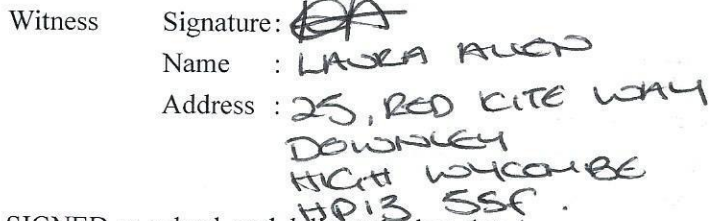 Witness Signature:
Name : LAURA ALLEN
Address : 25, RED KITE WAY
DOWNLEY
HIGH WYCOMBE
HP13 5SF.
SIGNED